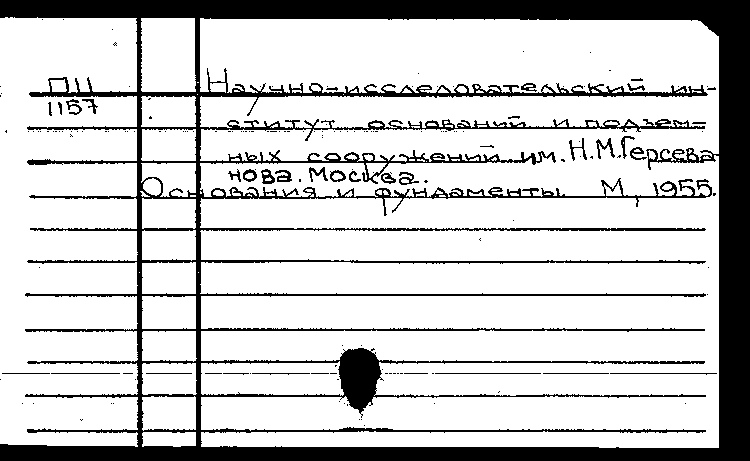 П11
1157
Научно-исследовательский ин-
ститут оснований и подзем=
ных сооружений им. Н.М.Герсева-
нова. Москва.
Основания и фундаменты. М, 1955.